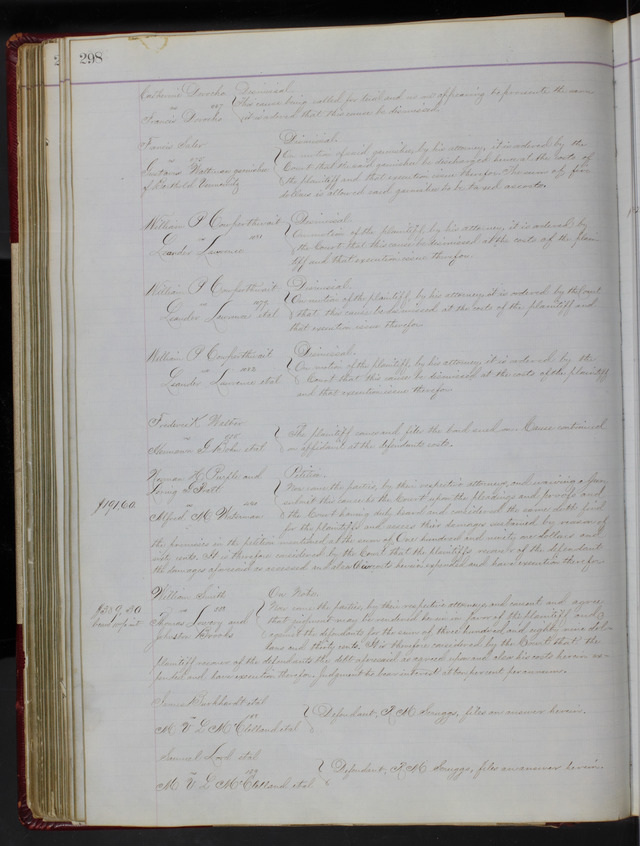 298
Catherine Dworke Dismissal.
vs This cause being called for trial and no one appearing to prosecute the same
Francis Dworke it is ordered that this cause be dismissed.
Dismissal.
vs On motion of said garnishee, by his attorney, it is ordered by the
Gustavus garnishee Court that the said garnishee be discharged herein at the costs of
of the plaintiff and that execution issue therefor. The sum of five
dollars is allowed said garnishee to be taxed as costs.
William P Cowperthwait Dismissal.
vs On motion of the plaintiff, by his attorney, it is ordered by
Leander Lawrence the Court that this cause be dismissed at the costs of the plain-
tiff and that execution issue therefor.
William P Cowperthwait Dismissal.
vs 1079 On motion of the plaintiff, by his attorney, it is ordered by the Court
Leander Lawrence et al that this cause be dismissed at the costs of the plaintiff and
that execution issue therefor.
William P Cowperthwait Dismissal.
vs On motion of the plaintiff, by his attorney, it is ordered by the
Leander Lawrence et al Court that this cause be dismissed at the costs of the plaintiff
and that execution issue therefor.
Frederick
vs The plaintiff comes and files the bond sued on. Cause continued
et al on affidavit at the defendants costs.
Norman and Petition.
Pratt Now come the parties, by their respective attorneys, and waiving a jury
vs submit this cause to the Court upon the pleadings and proofs and
$191.60 Alfred M. Waterman the Court having duly heard and considered the same doth find
for the plaintiffs and assess their damages sustained by reason of
the premises in the petition mentioned at the sum of One hundred and ninety one dollars and
sixty cents. It is therefore considered by the Court that the plaintiffs recover of the defendant
the damages aforesaid as assessed and also their costs herein expended and have execution therefor.
William Smith On Note.
vs Now come the parties, by their respective attorneys and consent and agree
Thomas Lowry and that judgment may be rendered herein in favor of the plaintiff and
Johnston Brooks against the defendants for the sum of three hundred and eighty nine dol-
lars and thirty cents. It is therefore considered by the Court that the
plaintiff recover of the defendants the debt aforesaid as agreed upon and also his costs herein ex-
pended and have execution therefor. Judgment to bear interest at ten per cent per annum.
James Burkhardt et al
vs Defendant, R. M. Scruggs, files an answer herein.
M V L McClelland et al
Samuel Lock et al
vs Defendant, R. M. Scruggs, files an answer herein.
M V L McClelland et al